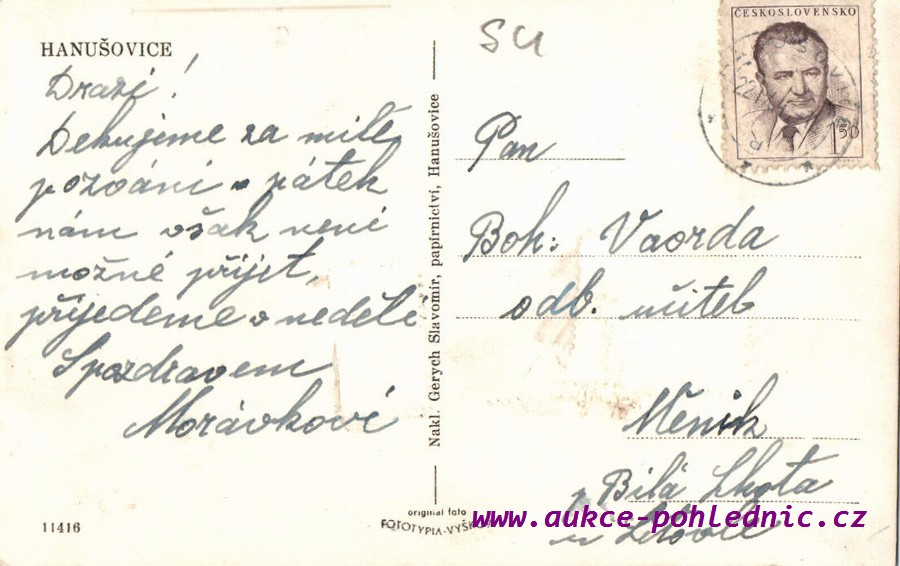 HANUŠOVICE
Drazí!
Děkujeme za milé
pozvání v pátek
nám však není
možné přijet,
přijedeme v neděli
S pozdravem
Morávkovi
11416
original foto
FOTOTYPIA-VYŠK
Nakl. Gerych Slavomír, papírnictví, Hanušovice
SU
ČESKOSLOVENSKO
1.50
Pan
Boh: Vaorda
odb. učitel
Měník
p. Bílá Lhota
u Litovle
www.aukce-pohlednic.cz